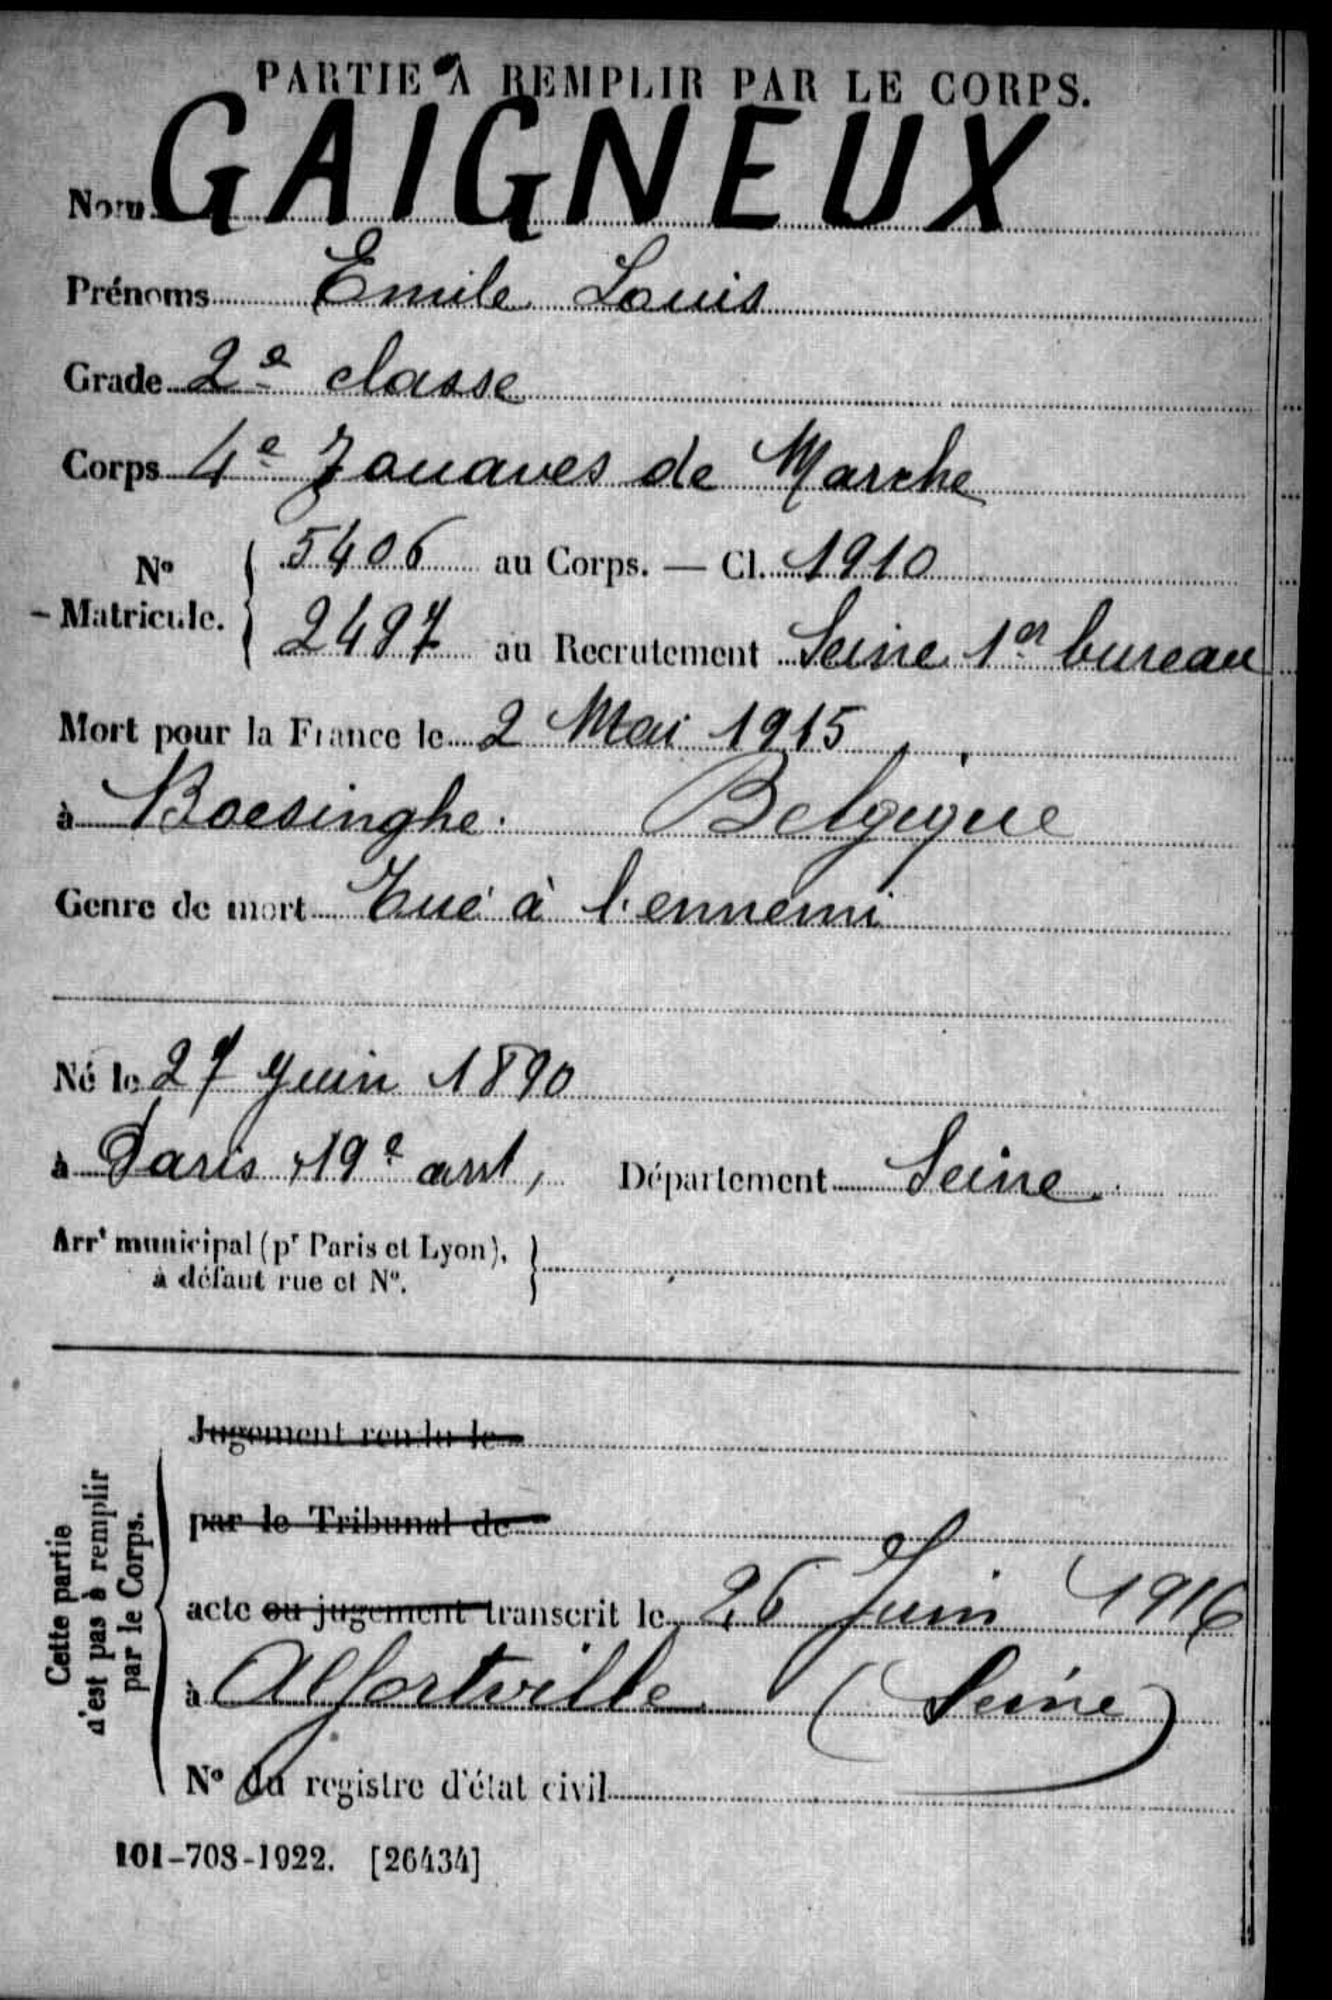 PARTIE A REMPLIR PAR LE CORPS.
Nom GAIGNEUX
Prénoms Emile Louis
Grade 2e classe
Corps 4e Zouaves de Marche
No Matricule. { 5406 au Corps. — Cl. 1910
2497 au Recrutement Seine 1er bureau
Mort pour la France le 2 Mai 1915
à Boesinghe. Belgique
Genre de mort Tué à l'ennemi
Né le 27 Juin 1890
à Paris 19e arrt, Département Seine
Arrt municipal (pr Paris et Lyon),
à défaut rue et No.
Jugement rendu le
par le Tribunal de
acte ou jugement transcrit le 26 Juin 1916
à Alfortville (Seine)
No du registre d'état civil
Cette partie
n'est pas à remplir
par le Corps.
101-708-1922. [26434]